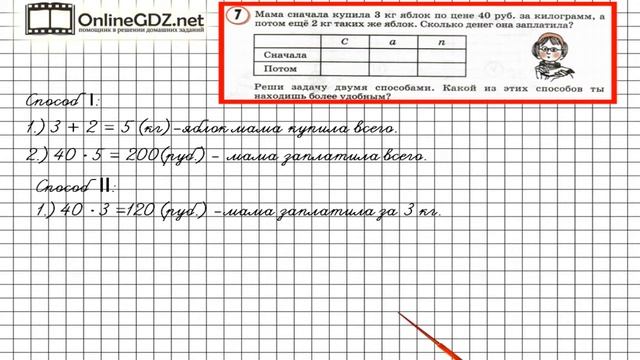 OnlineGDZ.net
помощник в решении домашних заданий
7 Мама сначала купила 3 кг яблок по цене 40 руб. за килограмм, а
потом ещё 2 кг таких же яблок. Сколько денег она заплатила?
С а п
Сначала
Потом
Реши задачу двумя способами. Какой из этих способов ты
находишь более удобным?
Способ I:
1.) 3 + 2 = 5 (кг) -яблок мама купила всего.
2.) 40 · 5 = 200(руб.) - мама заплатила всего.
Способ II:
1.) 40 · 3 =120 (руб.) -мама заплатила за 3 кг.